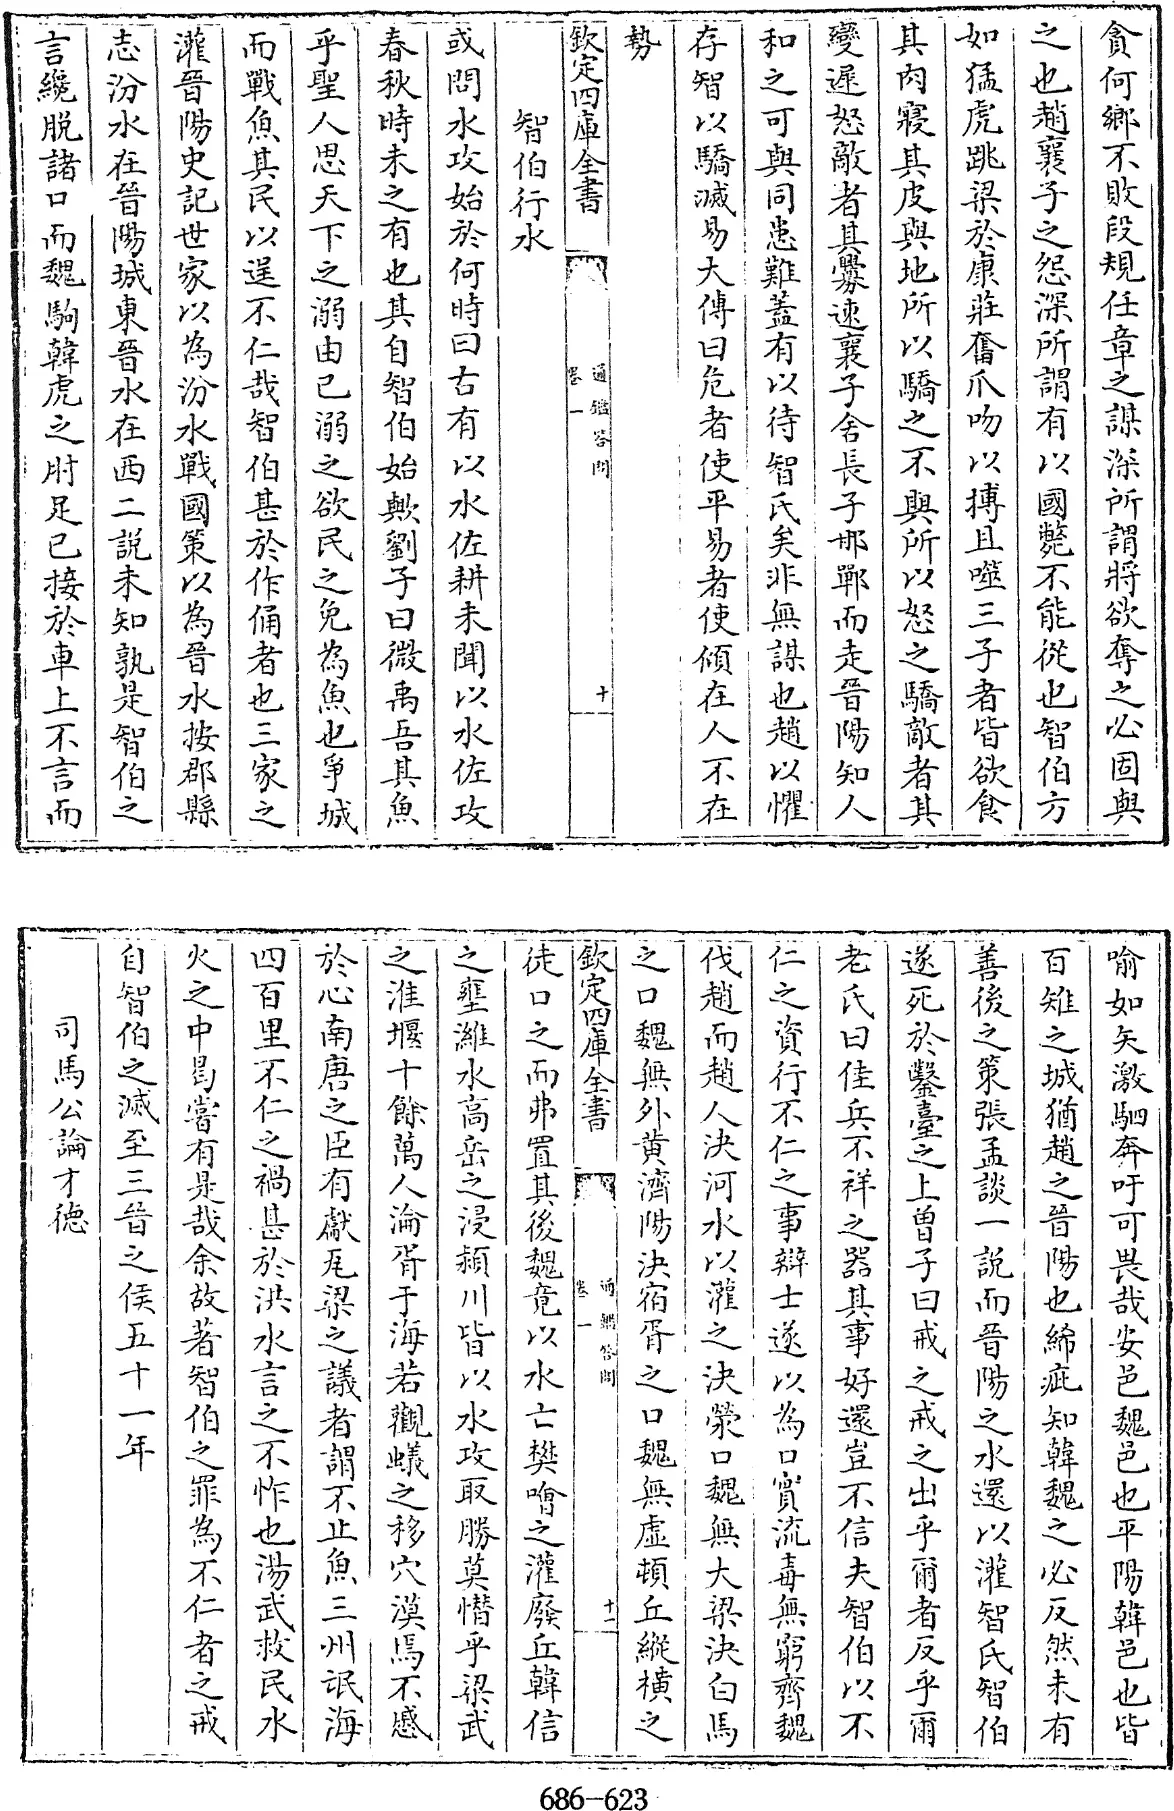 貪何鄉不敗段規任章之謀深所謂將欲奪之必固與
之也趙襄子之怨深所謂有以國斃不能從也智伯方
如猛虎跳梁於康莊奮爪吻以搏且噬三子者皆欲食
其肉寢其皮與地所以驕之不與所以怒之驕敵者其
變遲怒敵者其釁速襄子舍長子邯鄲而走晉陽知人
和之可與同患難蓋有以待智氏矣非無謀也趙以懼
存智以驕滅易大傳曰危者使平易者使傾在人不在
勢
欽定四庫全書
通鑑答問
卷一
十
智伯行水
或問水攻始於何時曰古有以水佐耕未聞以水佐攻
春秋時未之有也其自智伯始歟劉子曰微禹吾其魚
乎聖人思天下之溺由已溺之欲民之免為魚也爭城
而戰魚其民以逞不仁哉智伯甚於作俑者也三家之
灌晉陽史記世家以為汾水戰國策以為晉水按郡縣
志汾水在晉陽城東晉水在西二說未知孰是智伯之
言纔脫諸口而魏駒韓虎之肘足已接於車上不言而
喻如矢激駟奔吁可畏哉安邑魏邑也平陽韓邑也皆
百雉之城猶趙之晉陽也絺疵知韓魏之必反然未有
善後之策張孟談一說而晉陽之水還以灌智氏智伯
遂死於鑿臺之上曽子曰戒之戒之出乎爾者反乎爾
老氏曰佳兵不祥之器其事好還豈不信夫智伯以不
仁之資行不仁之事辯士遂以為口實流毒無窮齊魏
伐趙而趙人決河水以灌之決滎口魏無大梁決白馬
之口魏無外黄濟陽決宿胥之口魏無虛頓丘縱橫之
欽定四庫全書
通鑑答問
卷一
十一
徒口之而弗置其後魏竟以水亡樊噲之灌廢丘韓信
之壅濰水高岳之浸潁川皆以水攻取勝莫憯乎梁武
之淮堰十餘萬人淪胥于海若觀蟻之移穴漠焉不感
於心南唐之臣有獻瓦梁之議者謂不止魚三州氓海
四百里不仁之禍甚於洪水言之不怍也湯武救民水
火之中曷嘗有是哉余故著智伯之罪為不仁者之戒
自智伯之滅至三晉之侯五十一年
司馬公論才德
686-623